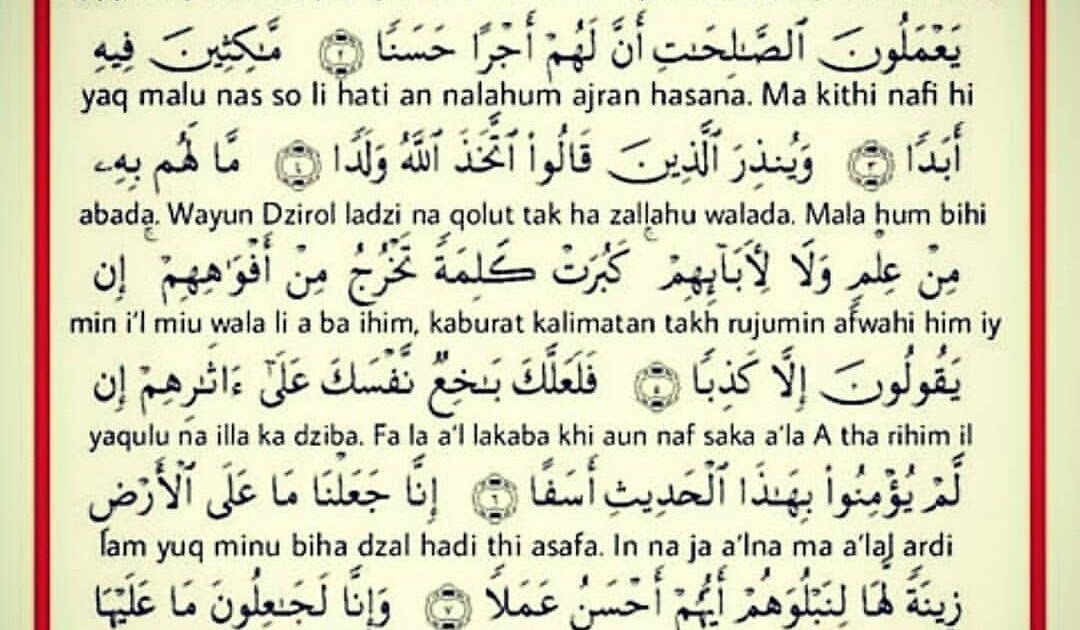 يَعْمَلُونَ ٱلصَّٰلِحَٰتِ أَنَّ لَهُمْ أَجْرًا حَسَنًا ٢ مَّٰكِثِينَ فِيهِ
yaq malu nas so li hati an nalahum ajran hasana. Ma kithi nafi hi
أَبَدًا ٣ وَيُنذِرَ ٱلَّذِينَ قَالُوا۟ ٱتَّخَذَ ٱللَّهُ وَلَدًا ٤ مَّا لَهُم بِهِۦ
abada. Wayun Dzirol ladzi na qolut tak ha zallahu walada. Mala hum bihi
مِنْ عِلْمٍ وَلَا لِأَبَآئِهِمْ ۚ كَبُرَتْ كَلِمَةً تَخْرُجُ مِنْ أَفْوَٰهِهِمْ ۚ إِن
min i'l miu wala li a ba ihim, kaburat kalimatan takh rujumin afwahi him iy
يَقُولُونَ إِلَّا كَذِبًا ٥ فَلَعَلَّكَ بَٰخِعٌ نَّفْسَكَ عَلَىٰٓ ءَاثَٰرِهِمْ إِن
yaqulu na illa ka dziba. Fa la a'l lakaba khi aun naf saka a'la A tha rihim il
لَّمْ يُؤْمِنُوا۟ بِهَٰذَا ٱلْحَدِيثِ أَسَفًا ٦ إِنَّا جَعَلْنَا مَا عَلَى ٱلْأَرْضِ
lam yuq minu biha dzal hadi thi asafa. In na ja a'lna ma a'lal ardi
زِينَةً لَّهَا لِنَبْلُوَهُمْ أَيُّهُمْ أَحْسَنُ عَمَلًا ٧ وَإِنَّا لَجَٰعِلُونَ مَا عَلَيْهَا